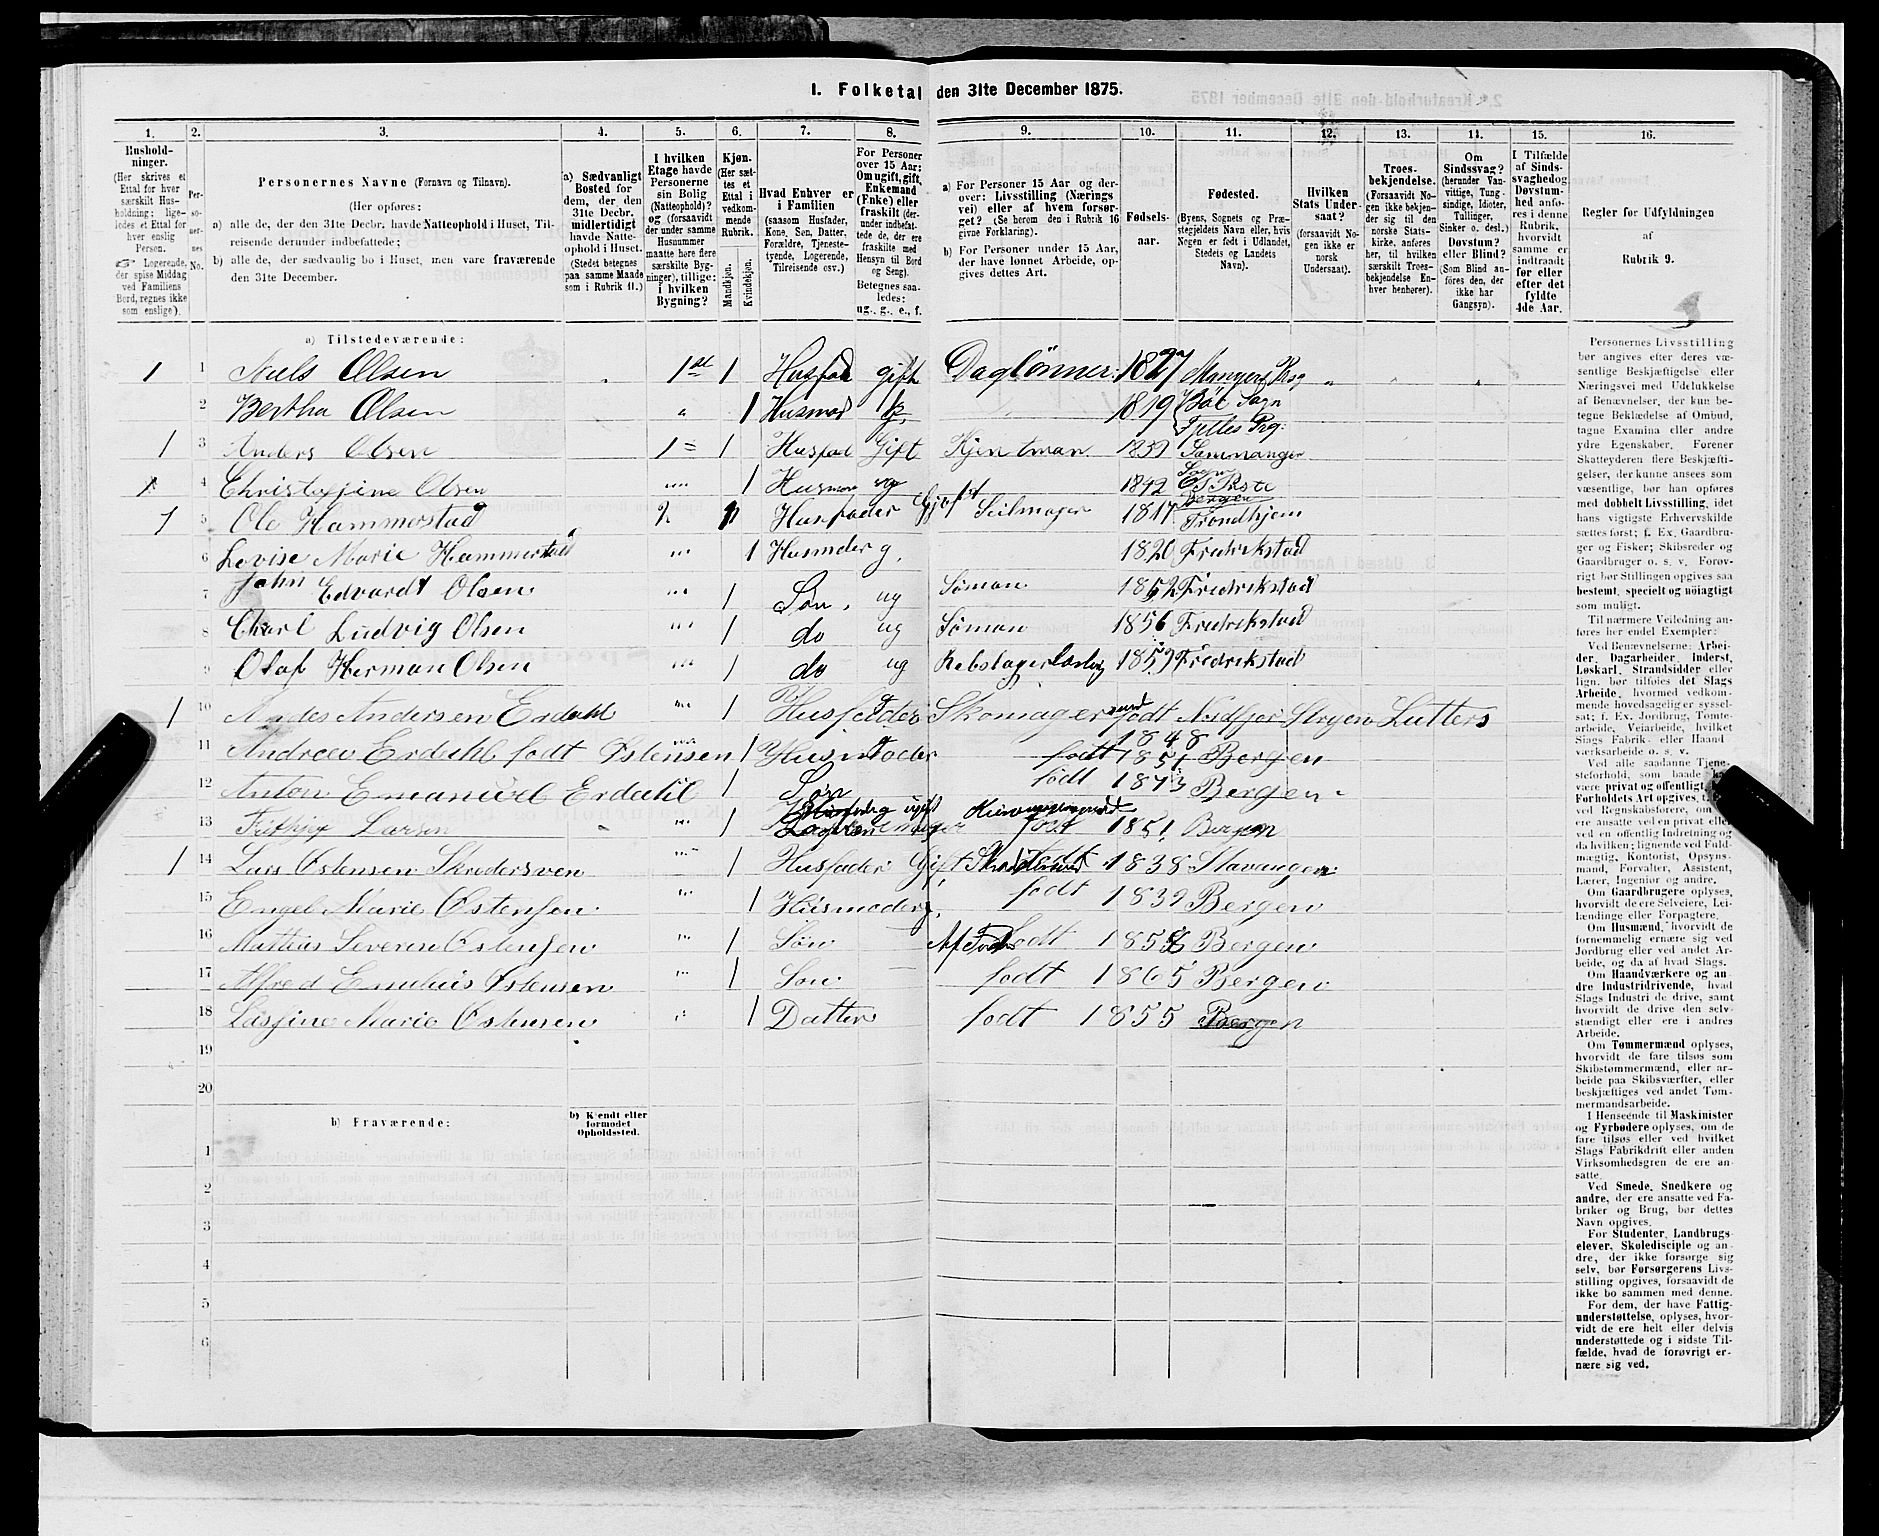 I. Folketal den 31te December 1875.
1. 2. 3. 4. 5. 6. 7. 8. 9. 10. 11. 12. 13. 14. 15. 16.
Hushold-
ninger.
(Her skrives et
Ettal for hver
særskilt Hus-
holdning; lige-
ledes et Ettal for
hver enslig
Person.
Logerende,
der spise Middag
ved Familiens
Bord, regnes ikke
som enslige).
Per-
so-
ner-
nes
No.
Personernes Navne (Fornavn og Tilnavn).
(Her opføres:
a) alle de, der den 31te Decbr. havde Natteophold i Huset, Til-
reisende derunder indbefattede;
b) alle de, der sædvanlig bo i Huset, men vare fraværende
den 31te December.
a) Sædvanligt
Bosted for
dem, der den
31te Decbr.
midlertidigt
havde Natte-
ophold i Huset.
(Stedet betegnes
paa samme Maade
som i Rubrik 11.)
I hvilken
Etage havde
Personerne
sin Bolig
(Natteophold)?
og (forsaavidt
der under samme
Husnummer
maatte høre flere
særskilte Byg-
ninger), tillige:
i hvilken
Bygning?
Kjøn.
(Her sæt-
tes et
Ettal i
vedkom-
mende
Rubrik.
Mandkjøn.
Kvindekjøn.
Hvad Enhver er
i Familien
(saasom Husfader,
Kone, Søn, Datter,
Forældre, Tjeneste-
tyende, Logerende,
Tilreisende osv.)
For Personer
over 15 Aar:
Om ugift, gift,
Enkemand
(Enke) eller
fraskilt (der-
under indbefat-
tede de, der ere
fraskilte med
Hensyn til Bord
og Seng).
Betegnes saa-
ledes:
ug., g., e., f.
a) For Personer 15 Aar og der-
over: Livsstilling (Nærings
vei) eller af hvem forsør-
get? (Se herom den i Rubrik 16
givne Forklaring).
b) For Personer under 15 Aar,
der have lønnet Arbeide, op-
gives dettes Art.
Fødsels-
aar.
Fødested.
(Byens, Sognets og Præ-
stegjeldets Navn eller, hvis
Nogen er født i Udlandet,
Stedets og Landets
Navn).
Hvilken
Stats Under-
saat?
(forsaavidt No-
gen ikke er
norsk
Undersaat).
Troes-
bekjendelse.
(Forsaavidt No-
gen ikke bekjen-
der sig til den
norske Stats-
kirke, anføres
her, til hvilken
særskilt Troes-
bekjendelse En-
hver henhører).
Om
Sindssvag?
(herunder Van-
vittige, Tung-
sindige, Idioter,
Tullinger,
Sinker o. desl.)
Døvstum?
eller Blind?
(Som Blind an-
føres den, der
ikke har
Gangsyn).
I Tilfælde
af Sinds-
svaghed og
Døvstum-
hed anfø-
res i denne
Rubrik,
hvorvidt
samme er
indtraadt
før eller
efter det
fyldte
4de Aar.
Regler for Udfyldningen
af
Rubrik 9.
a) Tilstedeværende:
1 1 Niels Olsen 1ste 1 Husfad gift Daglønner 1827 Mangers Prsg
2 Bertha Olsen 1 Husmod g. 1819 Bøe Sogn
Fjelles Prg:
1 3 Anders Olsen 1 1 Husfad Gift 1839 Sammanger
Sogn
4 Olsen 1 1842
Bergen
1 5 Ole Hammerstad 2 1 Husfader Gjøft Seilmager 1817 Trondhjem
6 Lovise Marie Hammerstad 1 Husmder g. 1820 Fredrikstad
7 John Edvardt Olsen 1 Søn. ug Søman 1852 Fredrikstad
8 Charl Ludvig Olsen 1 do ug Sømon 1856 Fredrikstad
9 Olaf Herman Olsen 1 do ug Rebslager 1859 Fredrikstad
1 10 Andes Andersen Erdahl 1 Husfader Skomager født Nordfjor Stryen Lutters
1848
11 Andrea Erdahl født Østensen 1 Husmoder født 1851 Bergen
12 Anton Emanuel Erdahl 1 Søn født 1873 Bergen
13 Larsen 1 født 1851 Bergen
1 14 Lars Østensen Skredersven 1 Husfader Gift født 1838 Stavanger
15 Engel Marie Østensen 1 Husmoder g. født 1839 Bergen
16 Mattius Severin Østensen 1 Søn født Bergen
17 Alfred Emelius Østensen 1 Søn født 1865 Bergen
18 Marie Østensen 1 Datter født 1855 Bergen
19
20
b) Fraværende:
b) Kjendt eller
formodet
Opholdssted.
1
2
3
4
5
6
Personernes Livsstilling
bør angives efter deres væ-
sentlige Beskjæftigelse eller
Næringsvei med Udelukkelse
af Benævnelser, der kun be-
tegne Beklædelse af Ombud,
tagne Examina eller andre
ydre Egenskaber. Forener
Skatteyderen flere Beskjæfti-
gelser, der kunne ansees som
væsentlige, bør han opføres
med dobbelt Livsstilling, idet
hans vigtigste Erhvervskilde
sættes først; f. Ex. Gaardbru-
ger og Fisker; Skibsreder og
Gaardbruger o. s. v. Forøv-
rigt bør Stillingen opgives saa
bestemt, specielt og nøiagtigt
som muligt.
Til nærmere Veiledning an-
føres her endel Exempler:
Ved Benævnelserne: Arbei-
der, Dagarbeider, Inderst,
Løskarl, Strandsidder eller
lign. bør tilføies det Slags
Arbeide, hvormed vedkom-
mende hovedsagelig er syssel-
sat; f. Ex. Jordbrug, Tomte-
arbeide, Veiarbeide, hvilket
Slags Fabrik- eller Haand
værksarbeide o. s. v.
Ved alle saadanne Tjene-
steforhold, som baade
være privat og offentlig,
Forholdets Art opgives,
ved Regnskabsførere, om
ere ansatte ved en privat eller
ved en offentlig Indretning og
da hvilken; lignende ved Fuld-
mægtig, Kontorist, Opsyns-
mand, Forvalter, Assistent,
Lærer, Ingeniør og andre.
Om Gaardbrugere oplyses,
hvorvidt de ere Selveiere, Lei-
lændinge eller Forpagtere.
Om Husmænd, hvorvidt de
fornemmelig ernære sig ved
Jordbrug eller ved andet Ar-
beide, og da af hvad Slags.
Om Haandværkere og an-
dre Industridrivende, hvad
Slags Industri de drive, samt
hvorvidt de drive den selv-
stændigt eller ere i andres
Arbeide.
Om Tømmermænd oplyses,
hvorvidt de fare tilsøs som
Skibstømmermænd, eller ar-
beide paa Skibsværfter, eller
beskjæftiges ved andet Tøm-
mermandsarbeide.
I Henseende til Maskinister
og Fyrbødere oplyses, om de
fare tilsøs eller ved hvilket
Slags Fabrikdrift eller anden
Virksomhedsgren de ere an-
satte.
Ved Smede, Snedkere og
andre, der ere ansatte ved Fa-
briker og Brug, bør dettes
Navn opgives.
For Studenter, Landbrugs-
elever, Skoledisciple og an-
dre, der ikke forsørge sig
selv, bør Forsørgerens Livs-
stilling opgives, forsaavidt de
ikke bo sammen med denne.
For dem, der have Fattig-
understøttelse, oplyses, hvor-
vidt de ere helt eller delvis
understøttede og i sidste Til-
fælde, hvad de forøvrigt er-
nære sig ved.